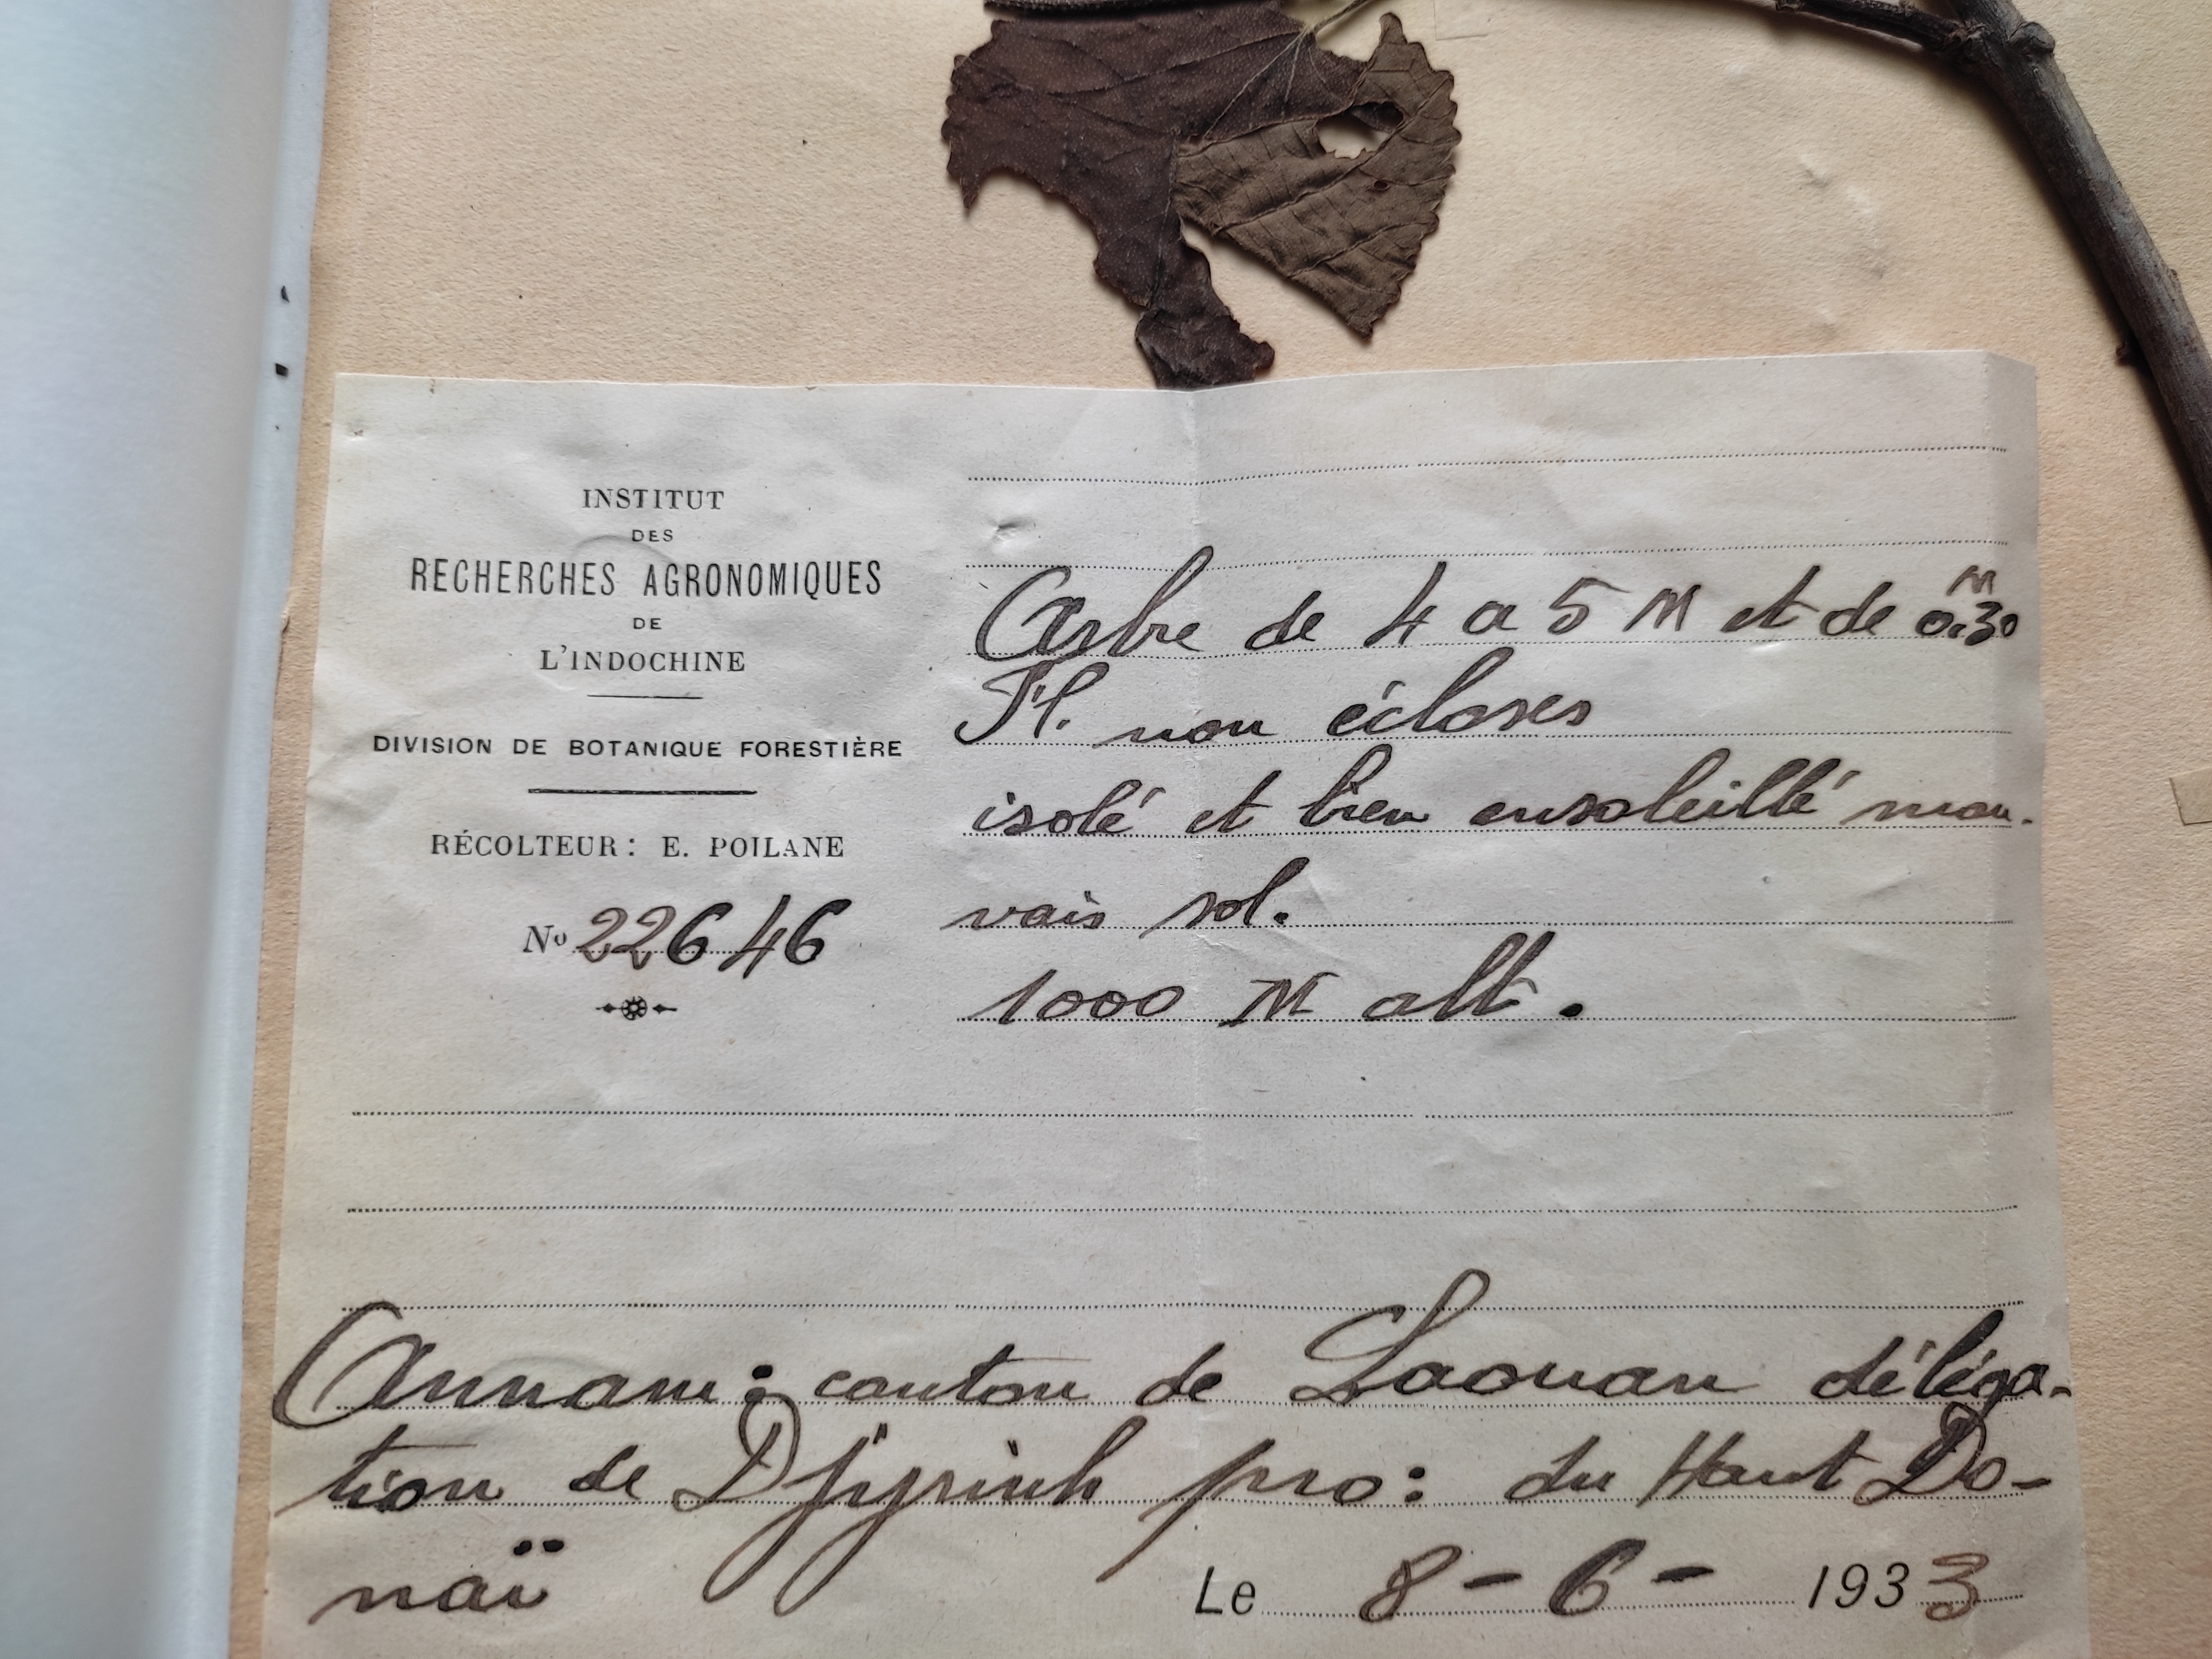 INSTITUT
DES
RECHERCHES AGRONOMIQUES
DE
L'INDOCHINE
DIVISION DE BOTANIQUE FORESTIÈRE
RÉCOLTEUR: E. POILANE
No 22646
Arbre de 4 a 5 M et de 0.30 M
Fl. non écloses
isolé et bien ensoleillé mau-
vais sol.
1000 M alt.
Annam: canton de Laouan déléga-
tion de Djyrinh pro: du Haut Do-
naï
Le 8-6-1933